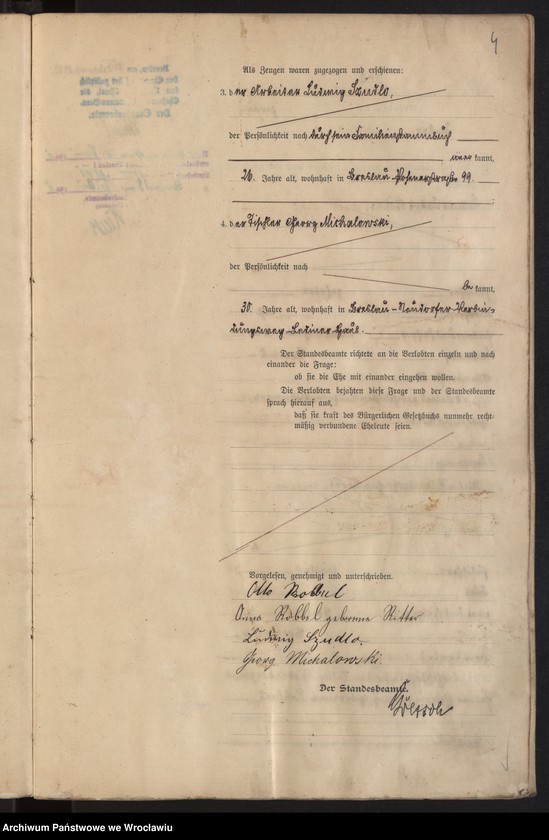 4
Als Zeugen waren zugezogen und erschienen:
3. der Arbeiter Ludwig Szudlo,
der Persönlichkeit nach durch sein Familienstammbuch
aner kannt,
26 Jahre alt, wohnhaft in Breslau Posenerstraße 99.
4. der Tischler Georg Michalowski,
der Persönlichkeit nach
be kannt,
30 Jahre alt, wohnhaft in Breslau - Neudorfer-Verbin-
dungsweg
Der Standesbeamte richtete an die Verlobten einzeln und nach
einander die Frage:
ob sie die Ehe mit einander eingehen wollen.
Die Verlobten bejahten diese Frage und der Standesbeamte
sprach hierauf aus,
daß sie kraft des Bürgerlichen Gesetzbuchs nunmehr recht-
mäßig verbundene Eheleute seien.
Vorgelesen, genehmigt und unterschrieben.
Otto Robbel
Anna Robbel geborene Ritter
Ludwig Szudlo.
Georg Michalowski.
Der Standesbeamte.
Archiwum Państwowe we Wrocławiu